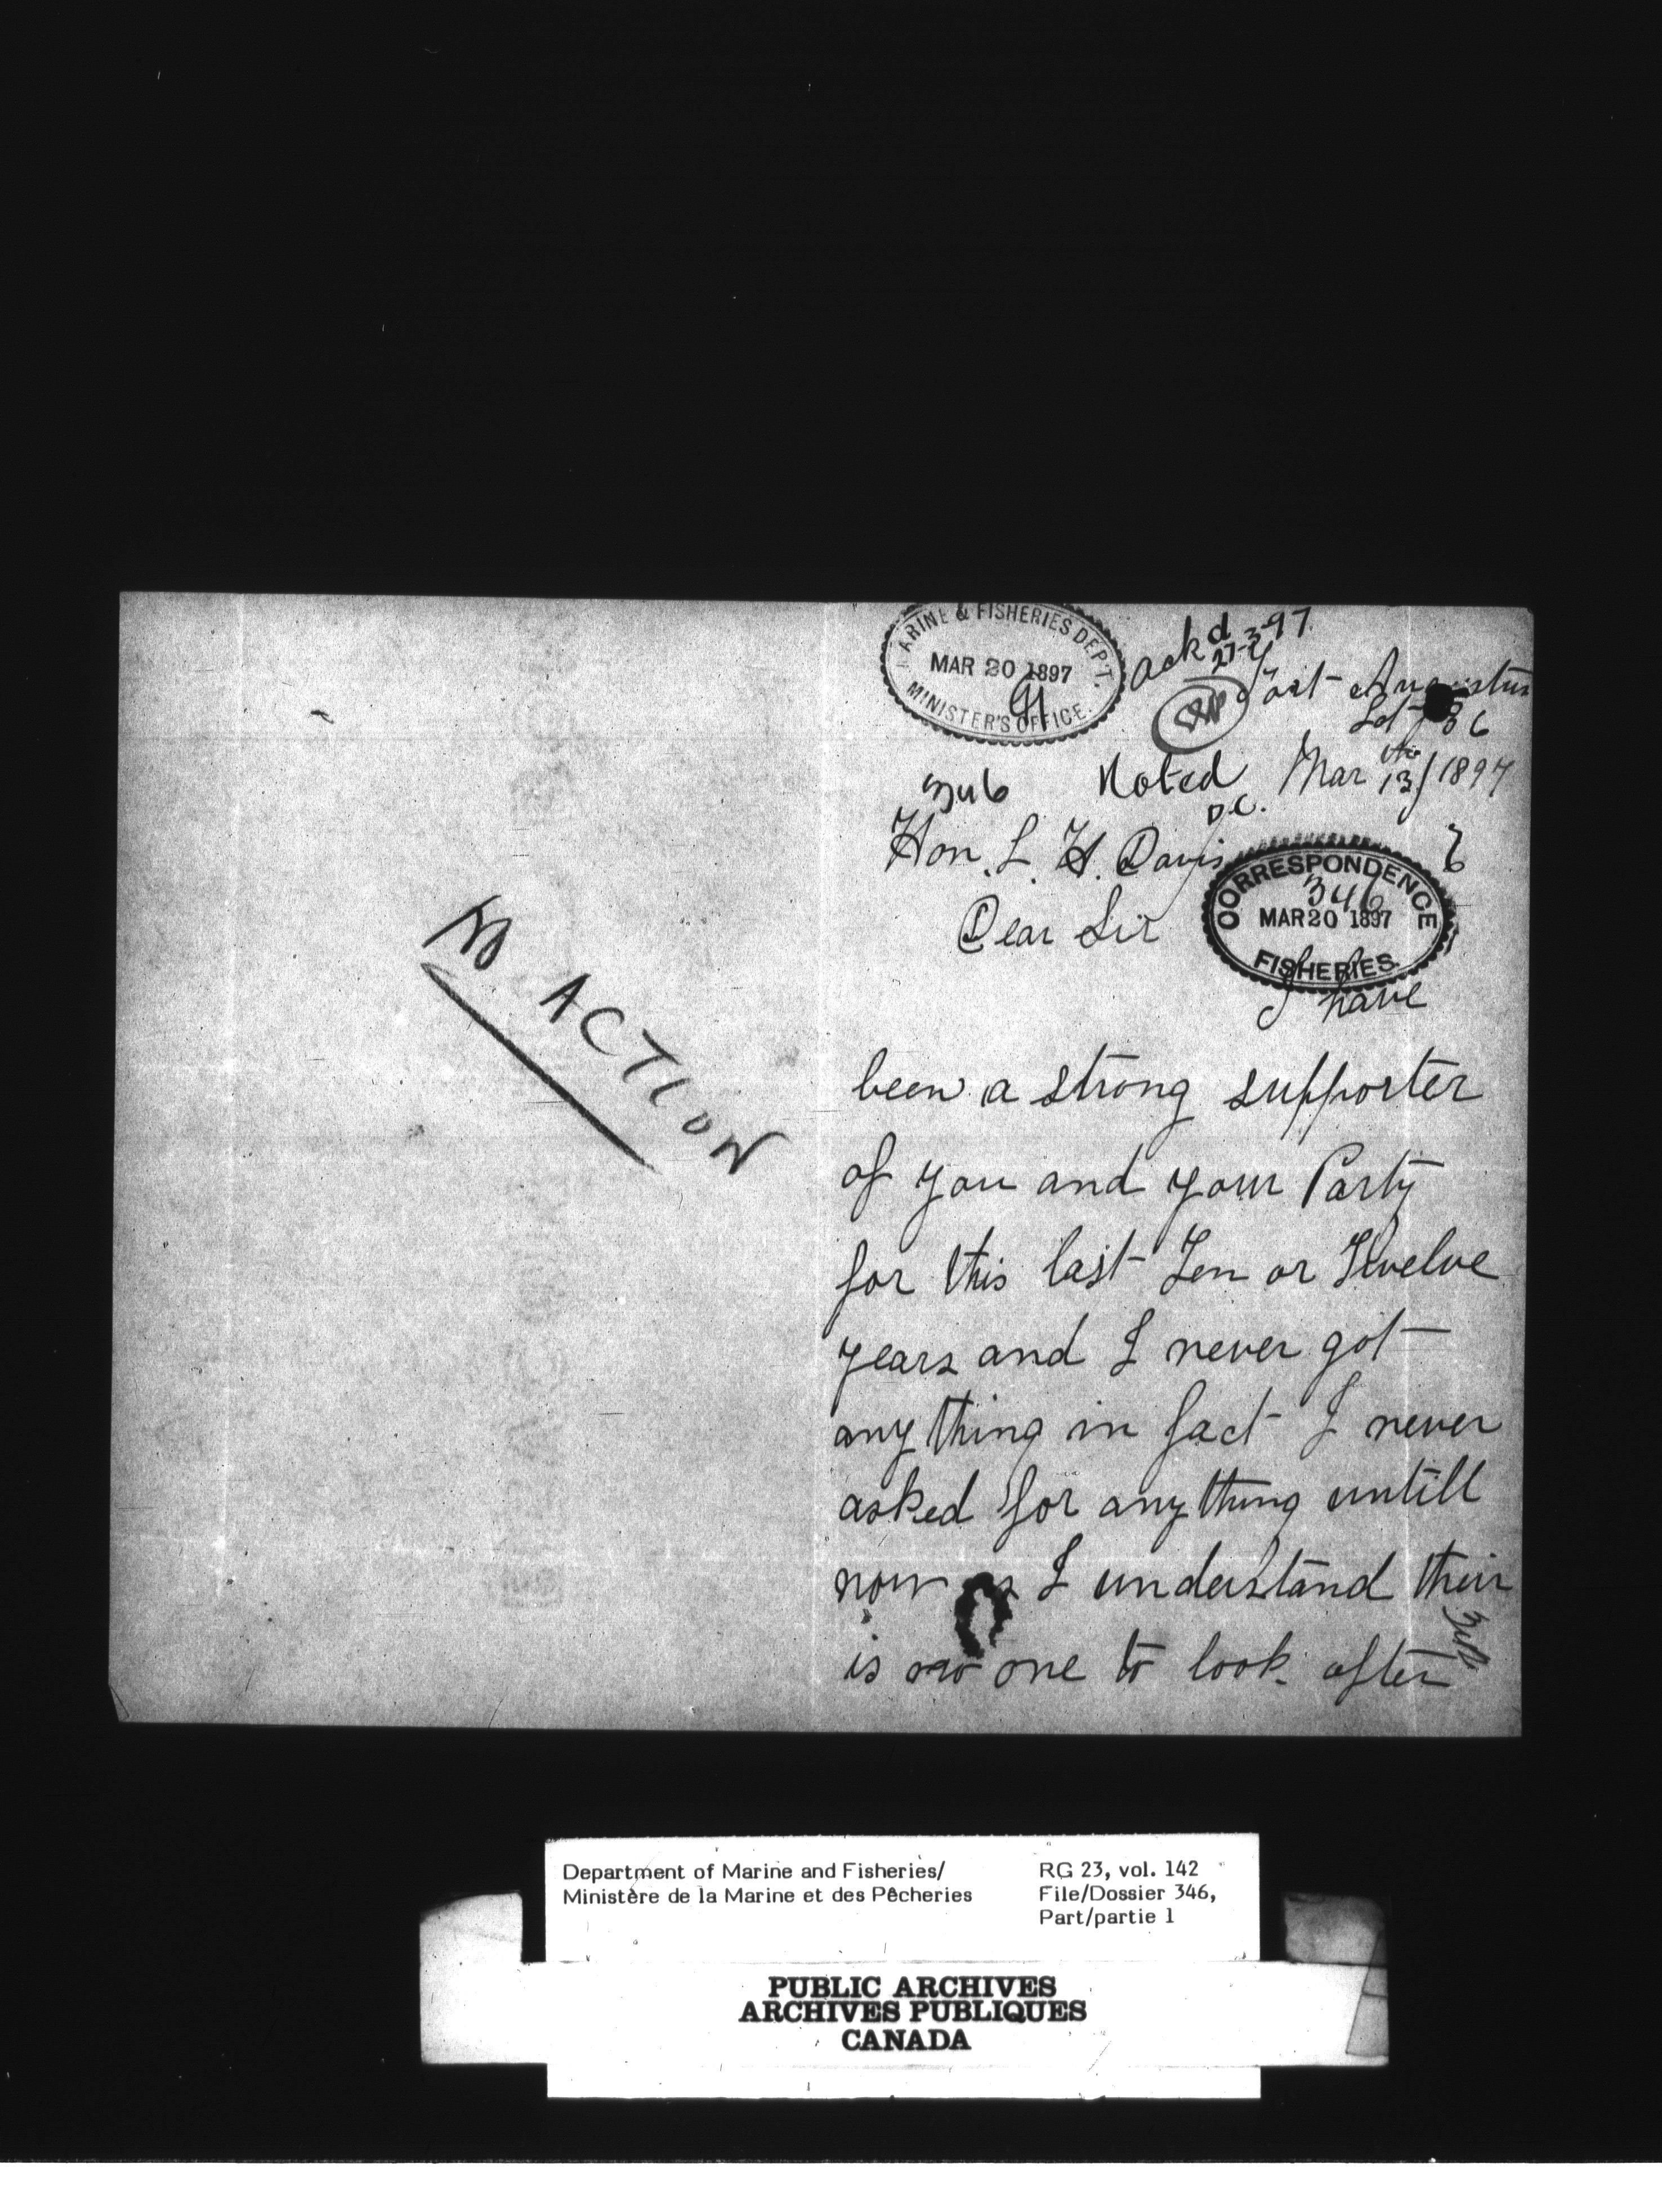 MARINE & FISHERIES DEPT.
MAR 20 1897
MINISTER'S OFFICE.
ackd 27-3-97.
Fort Augustus
Lot 36
346 Noted Mar 13th/1897
D.C.
Hon. L. H. Davis
CORRESPONDENCE
346
MAR 20 1897
FISHERIES.
Dear Sir
I have
been a strong supporter
of you and your Party
for this last Ten or Twelve
years and I never got
any thing in fact I never
asked for any thing untill
now as I understand their
is no one to look after
346
NO ACTION
Department of Marine and Fisheries/
Ministère de la Marine et des Pêcheries
RG 23, vol. 142
File/Dossier 346,
Part/partie 1
PUBLIC ARCHIVES
ARCHIVES PUBLIQUES
CANADA